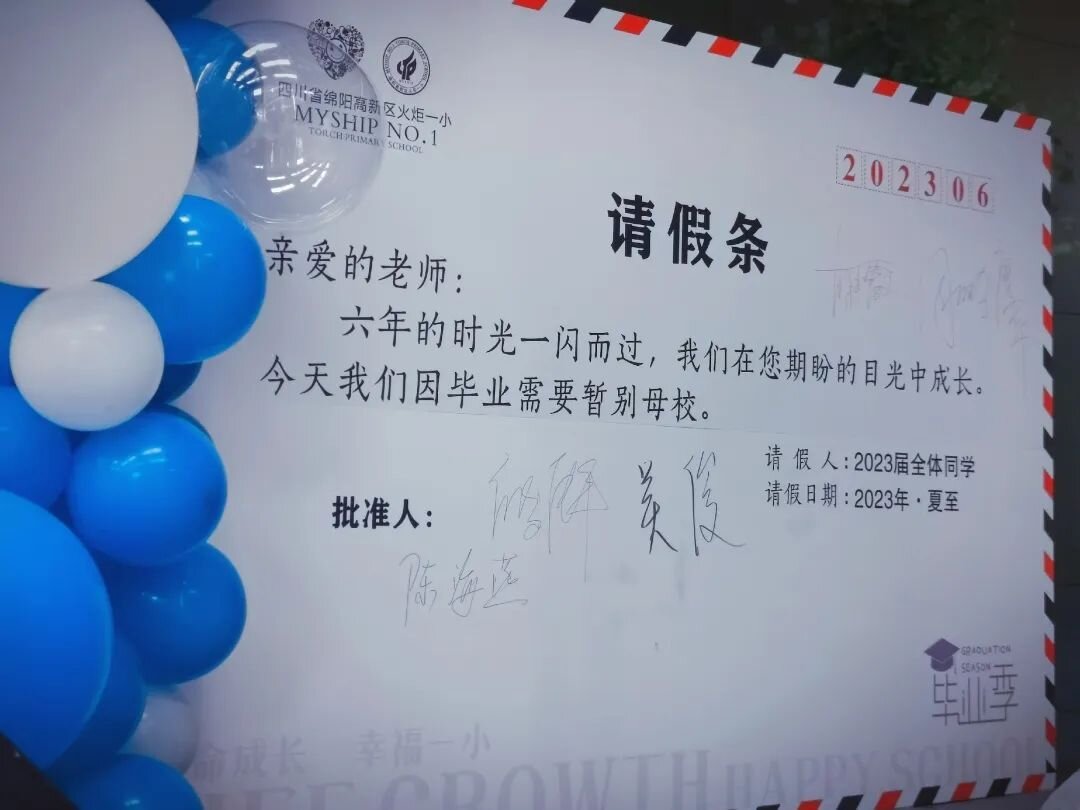 四川省绵阳高新区火炬一小
MYSHIP NO.1
TORCH PRIMARY SCHOOL
202306
请假条
亲爱的老师：
六年的时光一闪而过，我们在您期盼的目光中成长。
今天我们因毕业需要暂别母校。
请假人：2023届全体同学
请假日期：2023年·夏至
批准人：
陈海燕
GRADUATION
SEASON
毕业季
命成长 幸福一小
GROWTH HAPPY SCHOOL